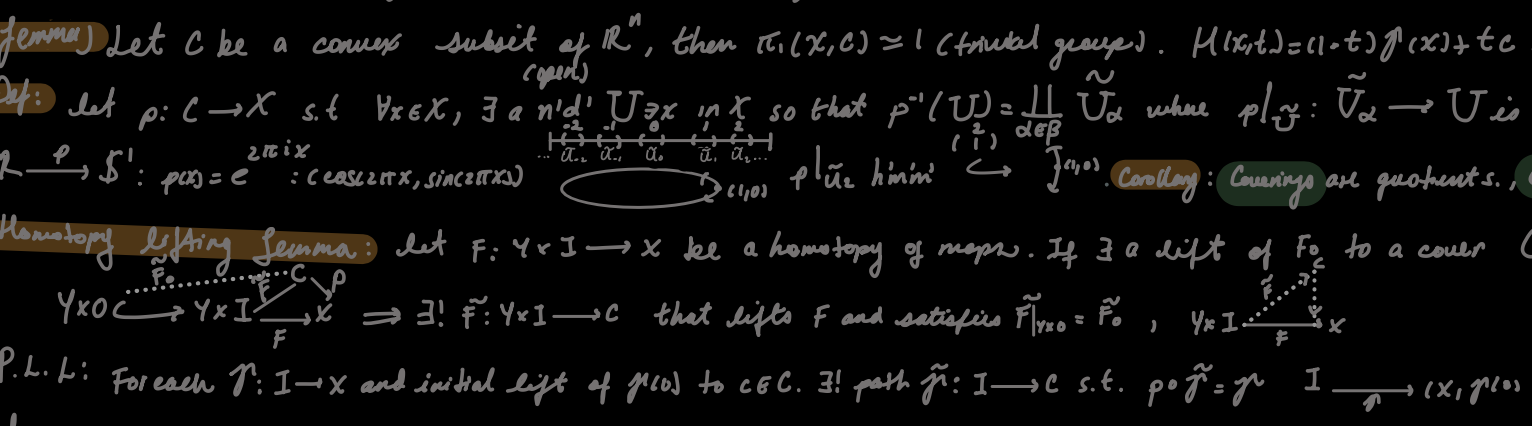 Lemma) Let C be a convex subset of ℝⁿ, then π₁(X,c) ≃ 1 (trivial group). H(x,t)=(1-t)γ(x)+tc
(open)
Def: let p: C → X s.t ∀x∈X, ∃ a n'd' U∋x in X so that p⁻¹(U)=∐_{α∈β} Ũ_α where p|_Ũ: Ũ_α → U is
-2 -1 0 1 2
... ũ₋₂ ũ₋₁ ũ₀ ũ₁ ũ₂...
ℝ →^p S¹: p(x)=e^{2πix} : (cos(2πx, sin(2πx)) (1,0) p|_{ũ₂} h'm'm' (1,0). Corollary: Coverings are quotients.,
Homotopy lifting Lemma: let F: Y×I → X be a homotopy of maps. If ∃ a lift of F₀ to a cover
F̃₀ F̃ C p
Y×0 ↪ Y×I →_F X ⟹ ∃! F̃: Y×I → C that lifts F and satisfies F̃|_{Y×0} = F̃₀, Y×I →_F X F̃ C
P.L.L: For each γ: I→X and initial lift of γ(0) to c∈C. ∃! path γ̃: I → C s.t. p∘γ̃=γ I →_γ (X, γ(0)